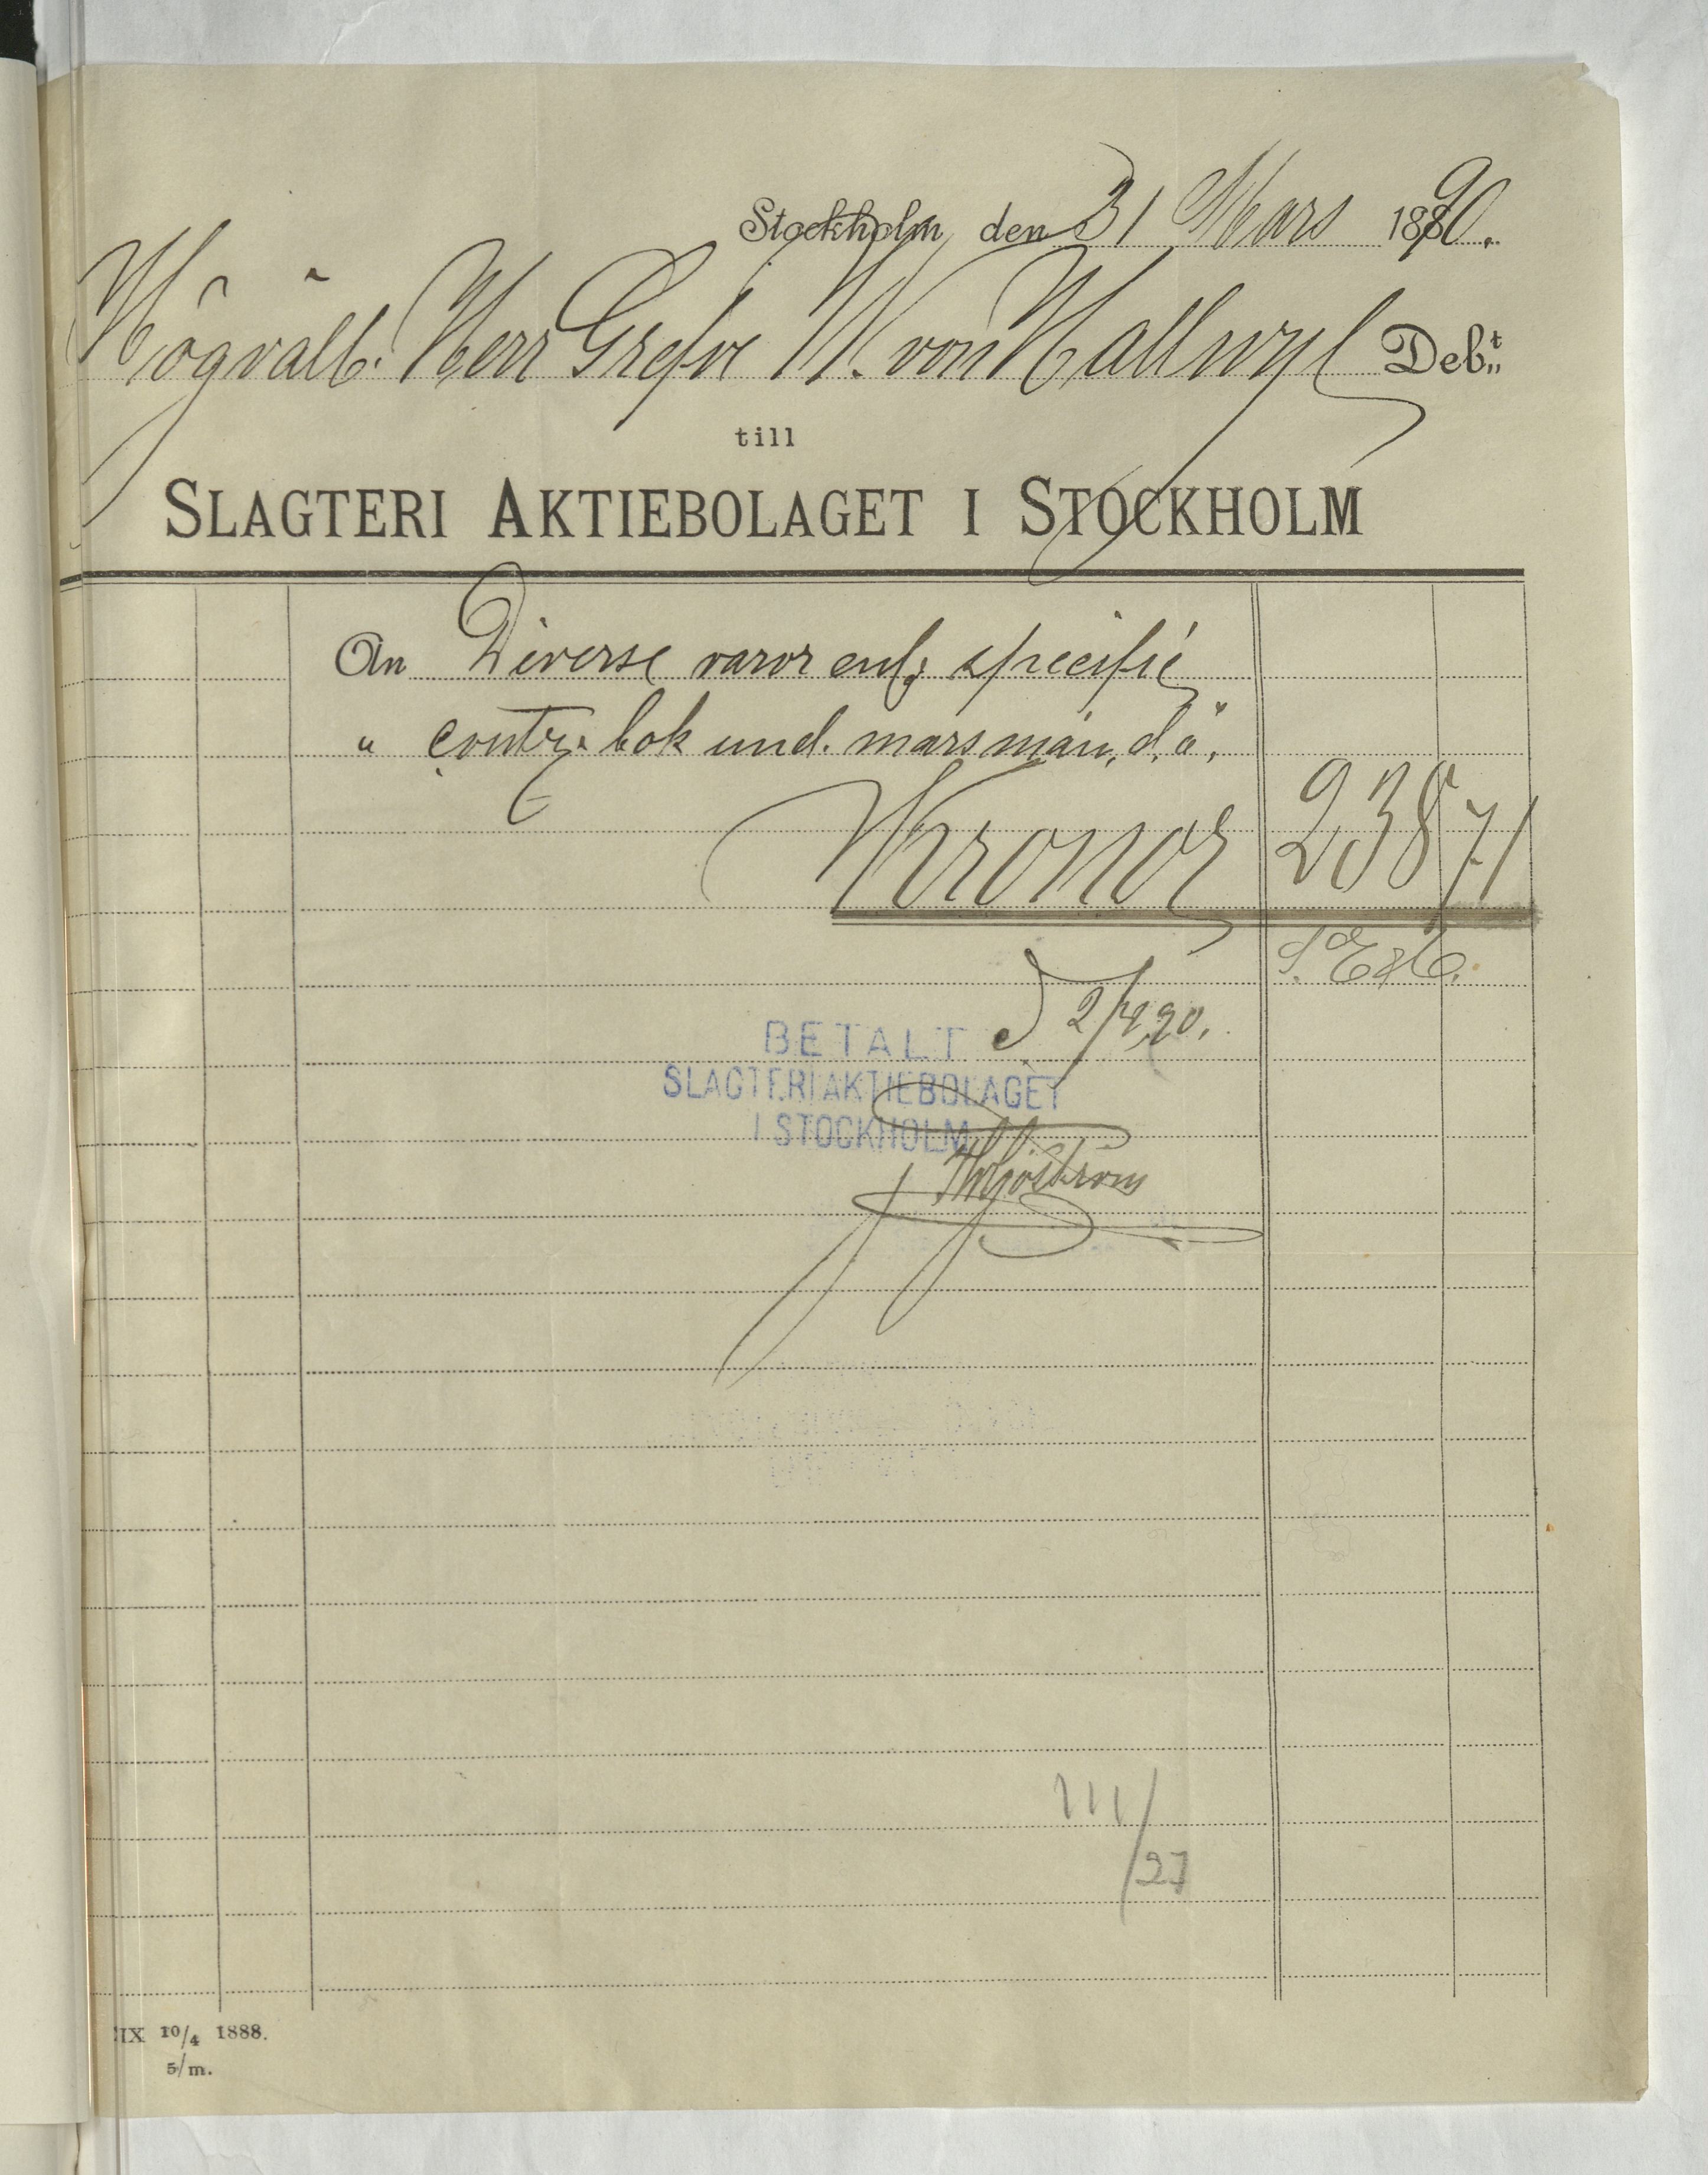 Stockholm den 31 Mars 1890.
Högvälb. Herr Grefve W. von Hallwyl Debt
till
SLAGTERI AKTIEBOLAGET I STOCKHOLM
An Diverse varor enl. specific
" contr. bok und. mars mån. d. å.
Kronor 238 71
S. E. & O.
d 2/4 90.
BETALT
SLAGTERIAKTIEBOLAGET
I STOCKHOLM
III/27
IX 10/4 1888.
5/m.